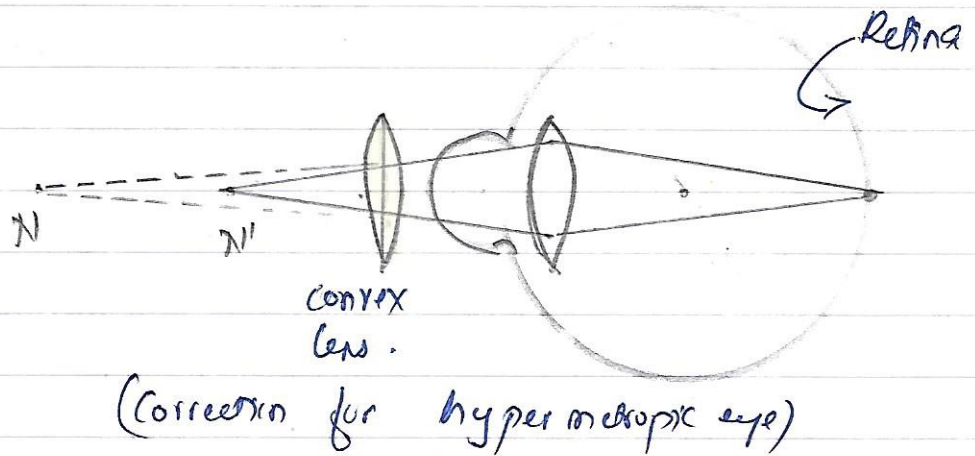 Retina
N
N'
convex
lens.
(Correction for hypermetropic eye)